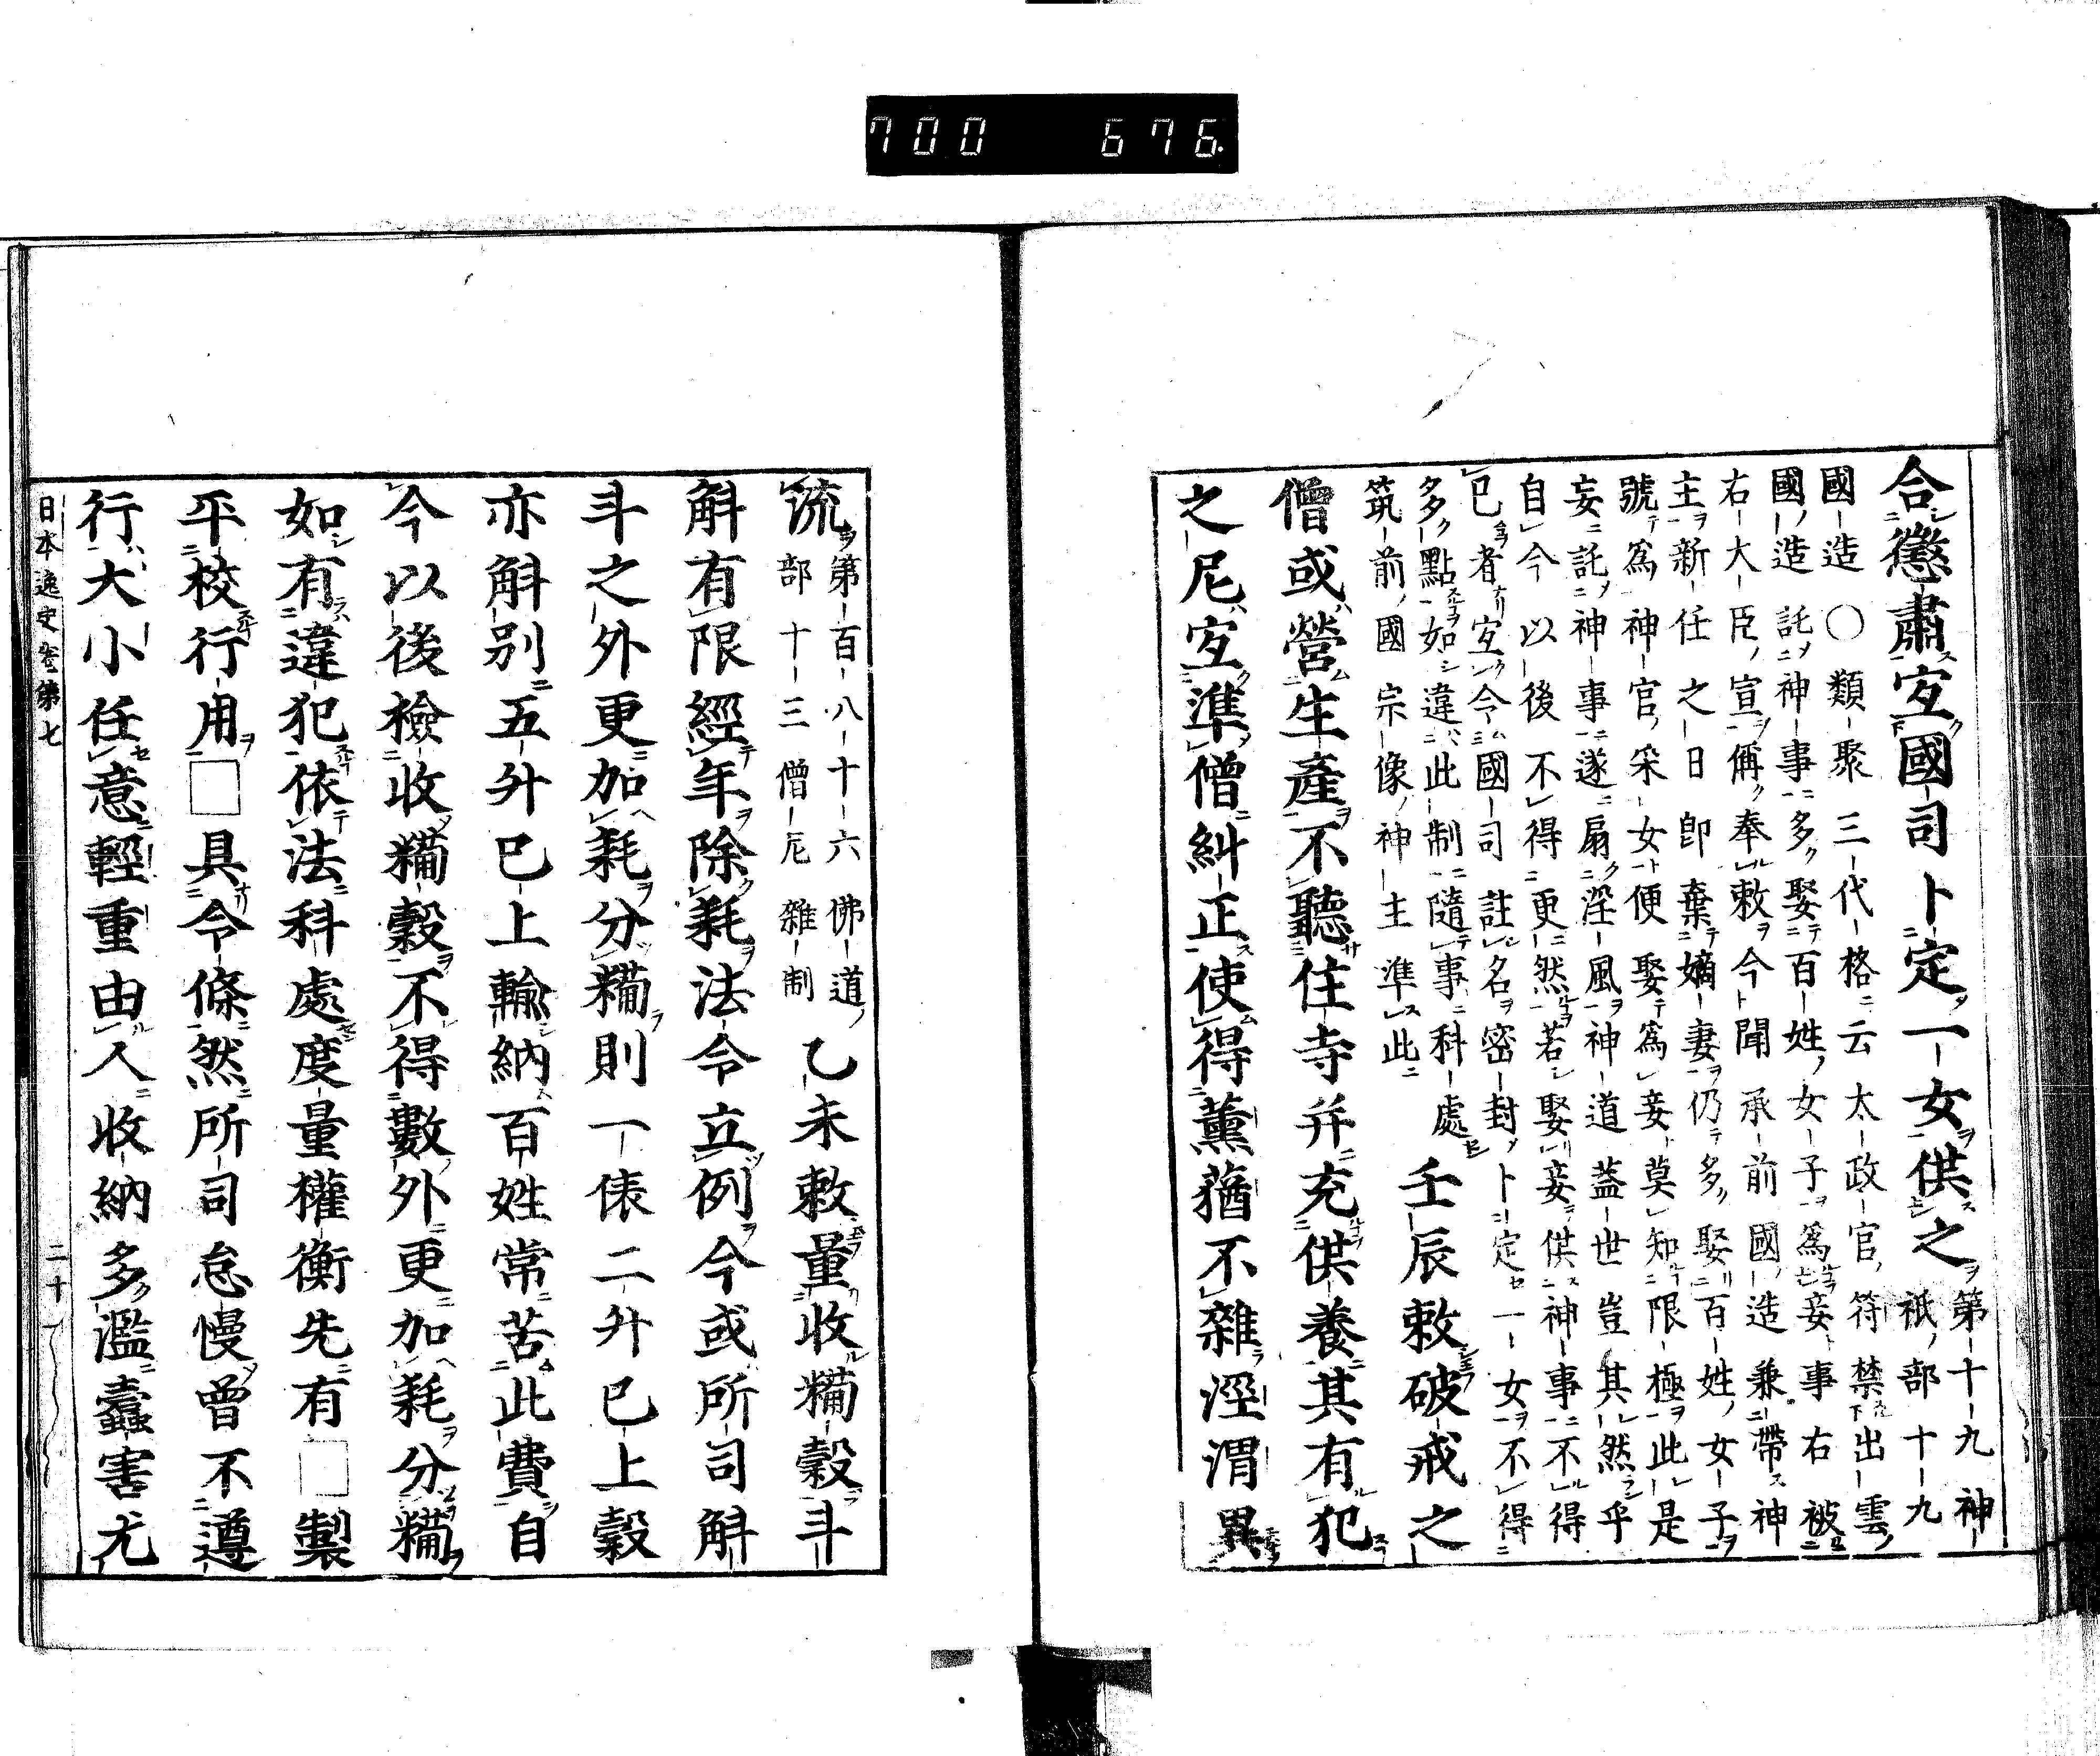 700 676.
合懲肅宐國司卜定一女供之 第十九神
祇部十九
國造〇類聚三代格云太政官符禁出雲
國造託神事多娶百姓女子爲妾事右被
右大臣宣偁奉敕今聞承前國造兼帶神
主新任之日卽棄嫡妻仍多娶百姓女子
號爲神官采女便娶爲妾莫知限極此是
妄託神事遂扇淫風神道益世豈其然乎
自今以後不得更然若娶妾供神事不得
已者宐今國司註名密封卜定一女不得
多點如違此制隨事科處 壬辰敕破戒之
筑前國宗像神主準此
僧或營生產不聽住寺幷充供養其有犯
之尼宐準僧糾正使得薰蕕不雜涇渭異
流 第百八十六佛道
部十三僧尼雜制 乙未敕量收糒穀斗
斛有限經年除耗法令立例今或所司斛
斗之外更加耗分糒則一俵二升已上穀
亦斛別五升已上輸納百姓常苦此費自
今以後檢收糒穀不得數外更加耗分糒
如有違犯依法科處度量權衡先有□製
平校行用□具令條然所司怠慢曾不遵
行大小任意輕重由人收納多濫蠹害尤
日本逸史卷第七 二十